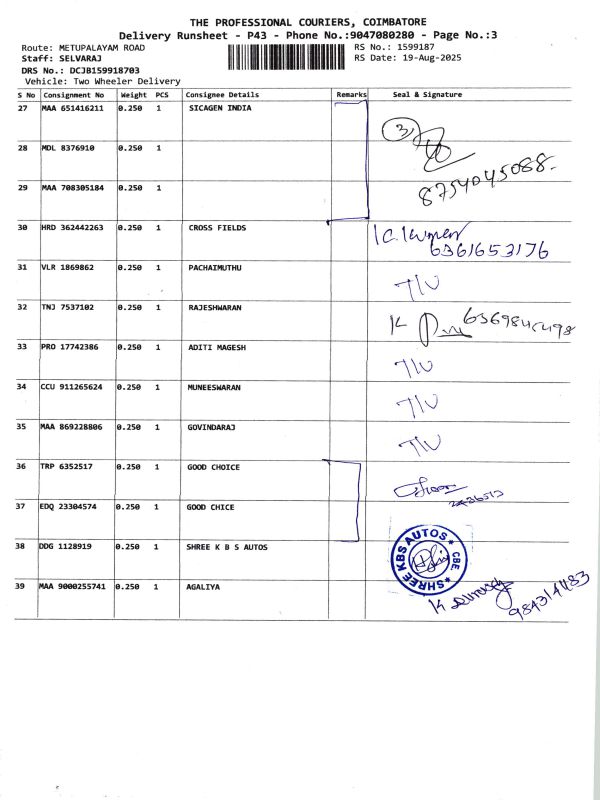 THE PROFESSIONAL COURIERS, COIMBATORE
Delivery Runsheet - P43 - Phone No.:9047080280 - Page No.:3
Route: METUPALAYAM ROAD RS No.: 1599187
Staff: SELVARAJ RS Date: 19-Aug-2025
DRS No.: DCJB159918703
Vehicle: Two Wheeler Delivery
S No Consignment No Weight PCS Consignee Details Remarks Seal & Signature
27 MAA 651416211 0.250 1 SICAGEN INDIA
3
28 MDL 8376910 0.250 1
29 MAA 708305184 0.250 1 8754045088.
30 HRD 362442263 0.250 1 CROSS FIELDS
6361653176
31 VLR 1869862 0.250 1 PACHAIMUTHU TIU
32 TNJ 7537102 0.250 1 RAJESHWARAN K
33 PRO 17742386 0.250 1 ADITI MAGESH TIU
34 CCU 911265624 0.250 1 MUNEESWARAN TIU
35 MAA 869228806 0.250 1 GOVINDARAJ TIU
36 TRP 6352517 0.250 1 GOOD CHOICE
37 EDQ 23304574 0.250 1 GOOD CHICE
38 DDG 1128919 0.250 1 SHREE K B S AUTOS SHREE KBS AUTOS * CBE *
39 MAA 9000255741 0.250 1 AGALIYA K